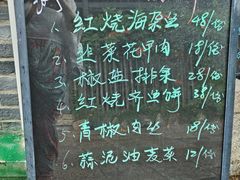 1. 红烧海杂鱼 48/份
2. 韭菜花甲肉 18/份
3. 椒盐排条 28/份
4. 红烧 38/份
5. 青椒肉丝 18/份
6. 蒜泥油麦菜 12/份